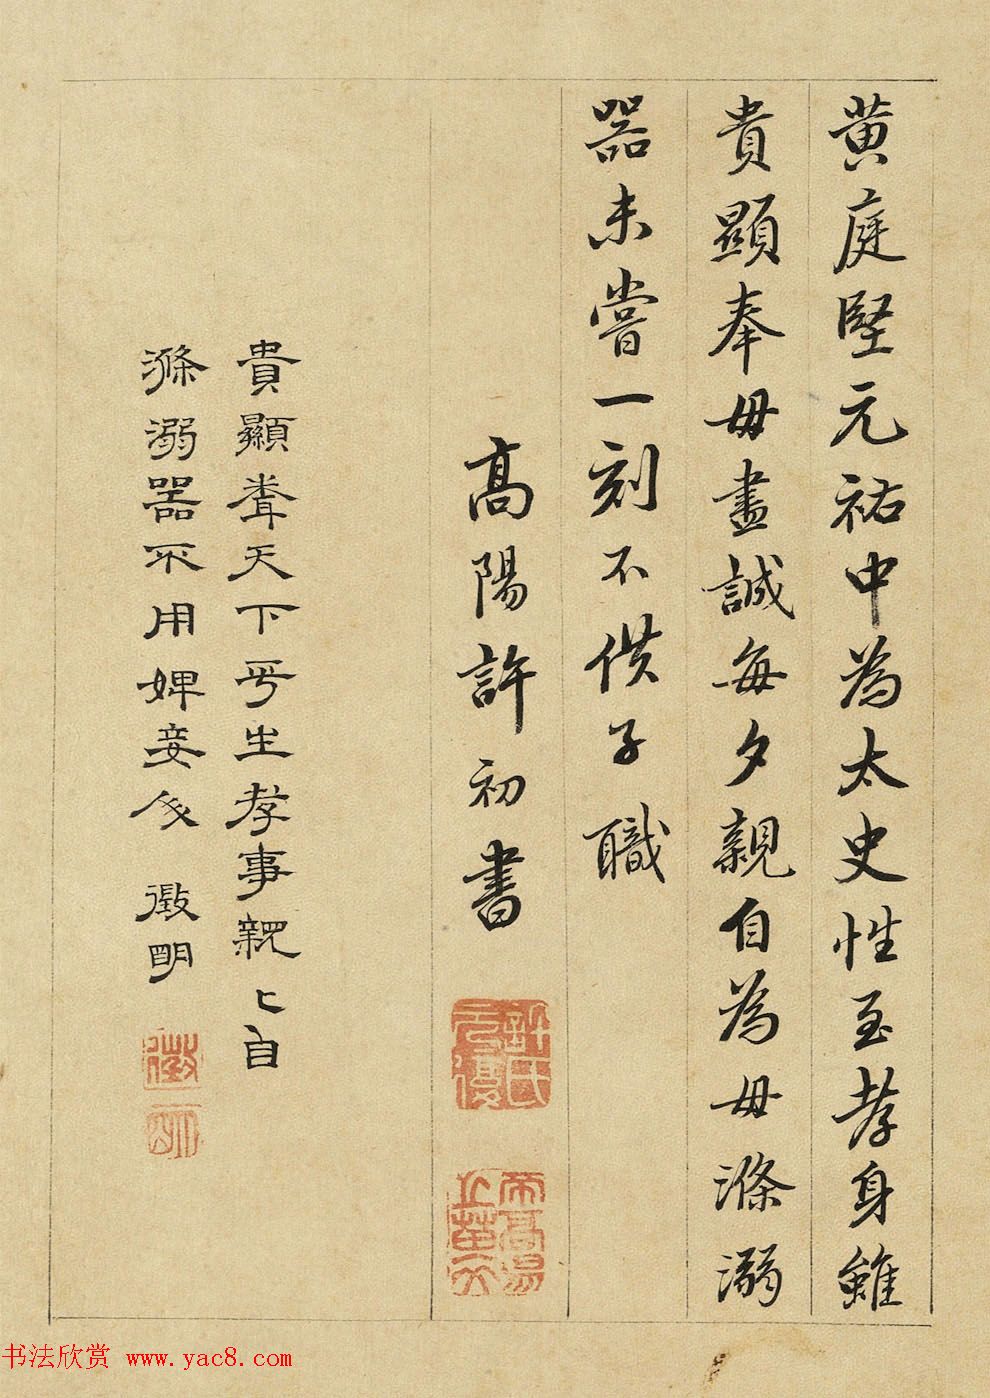 黄庭堅元祐中為太史性至孝身雖
貴顯奉母盡誠每夕親自為母滌溺
器未嘗一刻不供子職
高陽許初書
許氏元復
帝高陽之苗裔
貴顯聞天下平生孝事親〻自
滌溺器不用婢妾人 徵明
徵明
书法欣赏 www.yac8.com